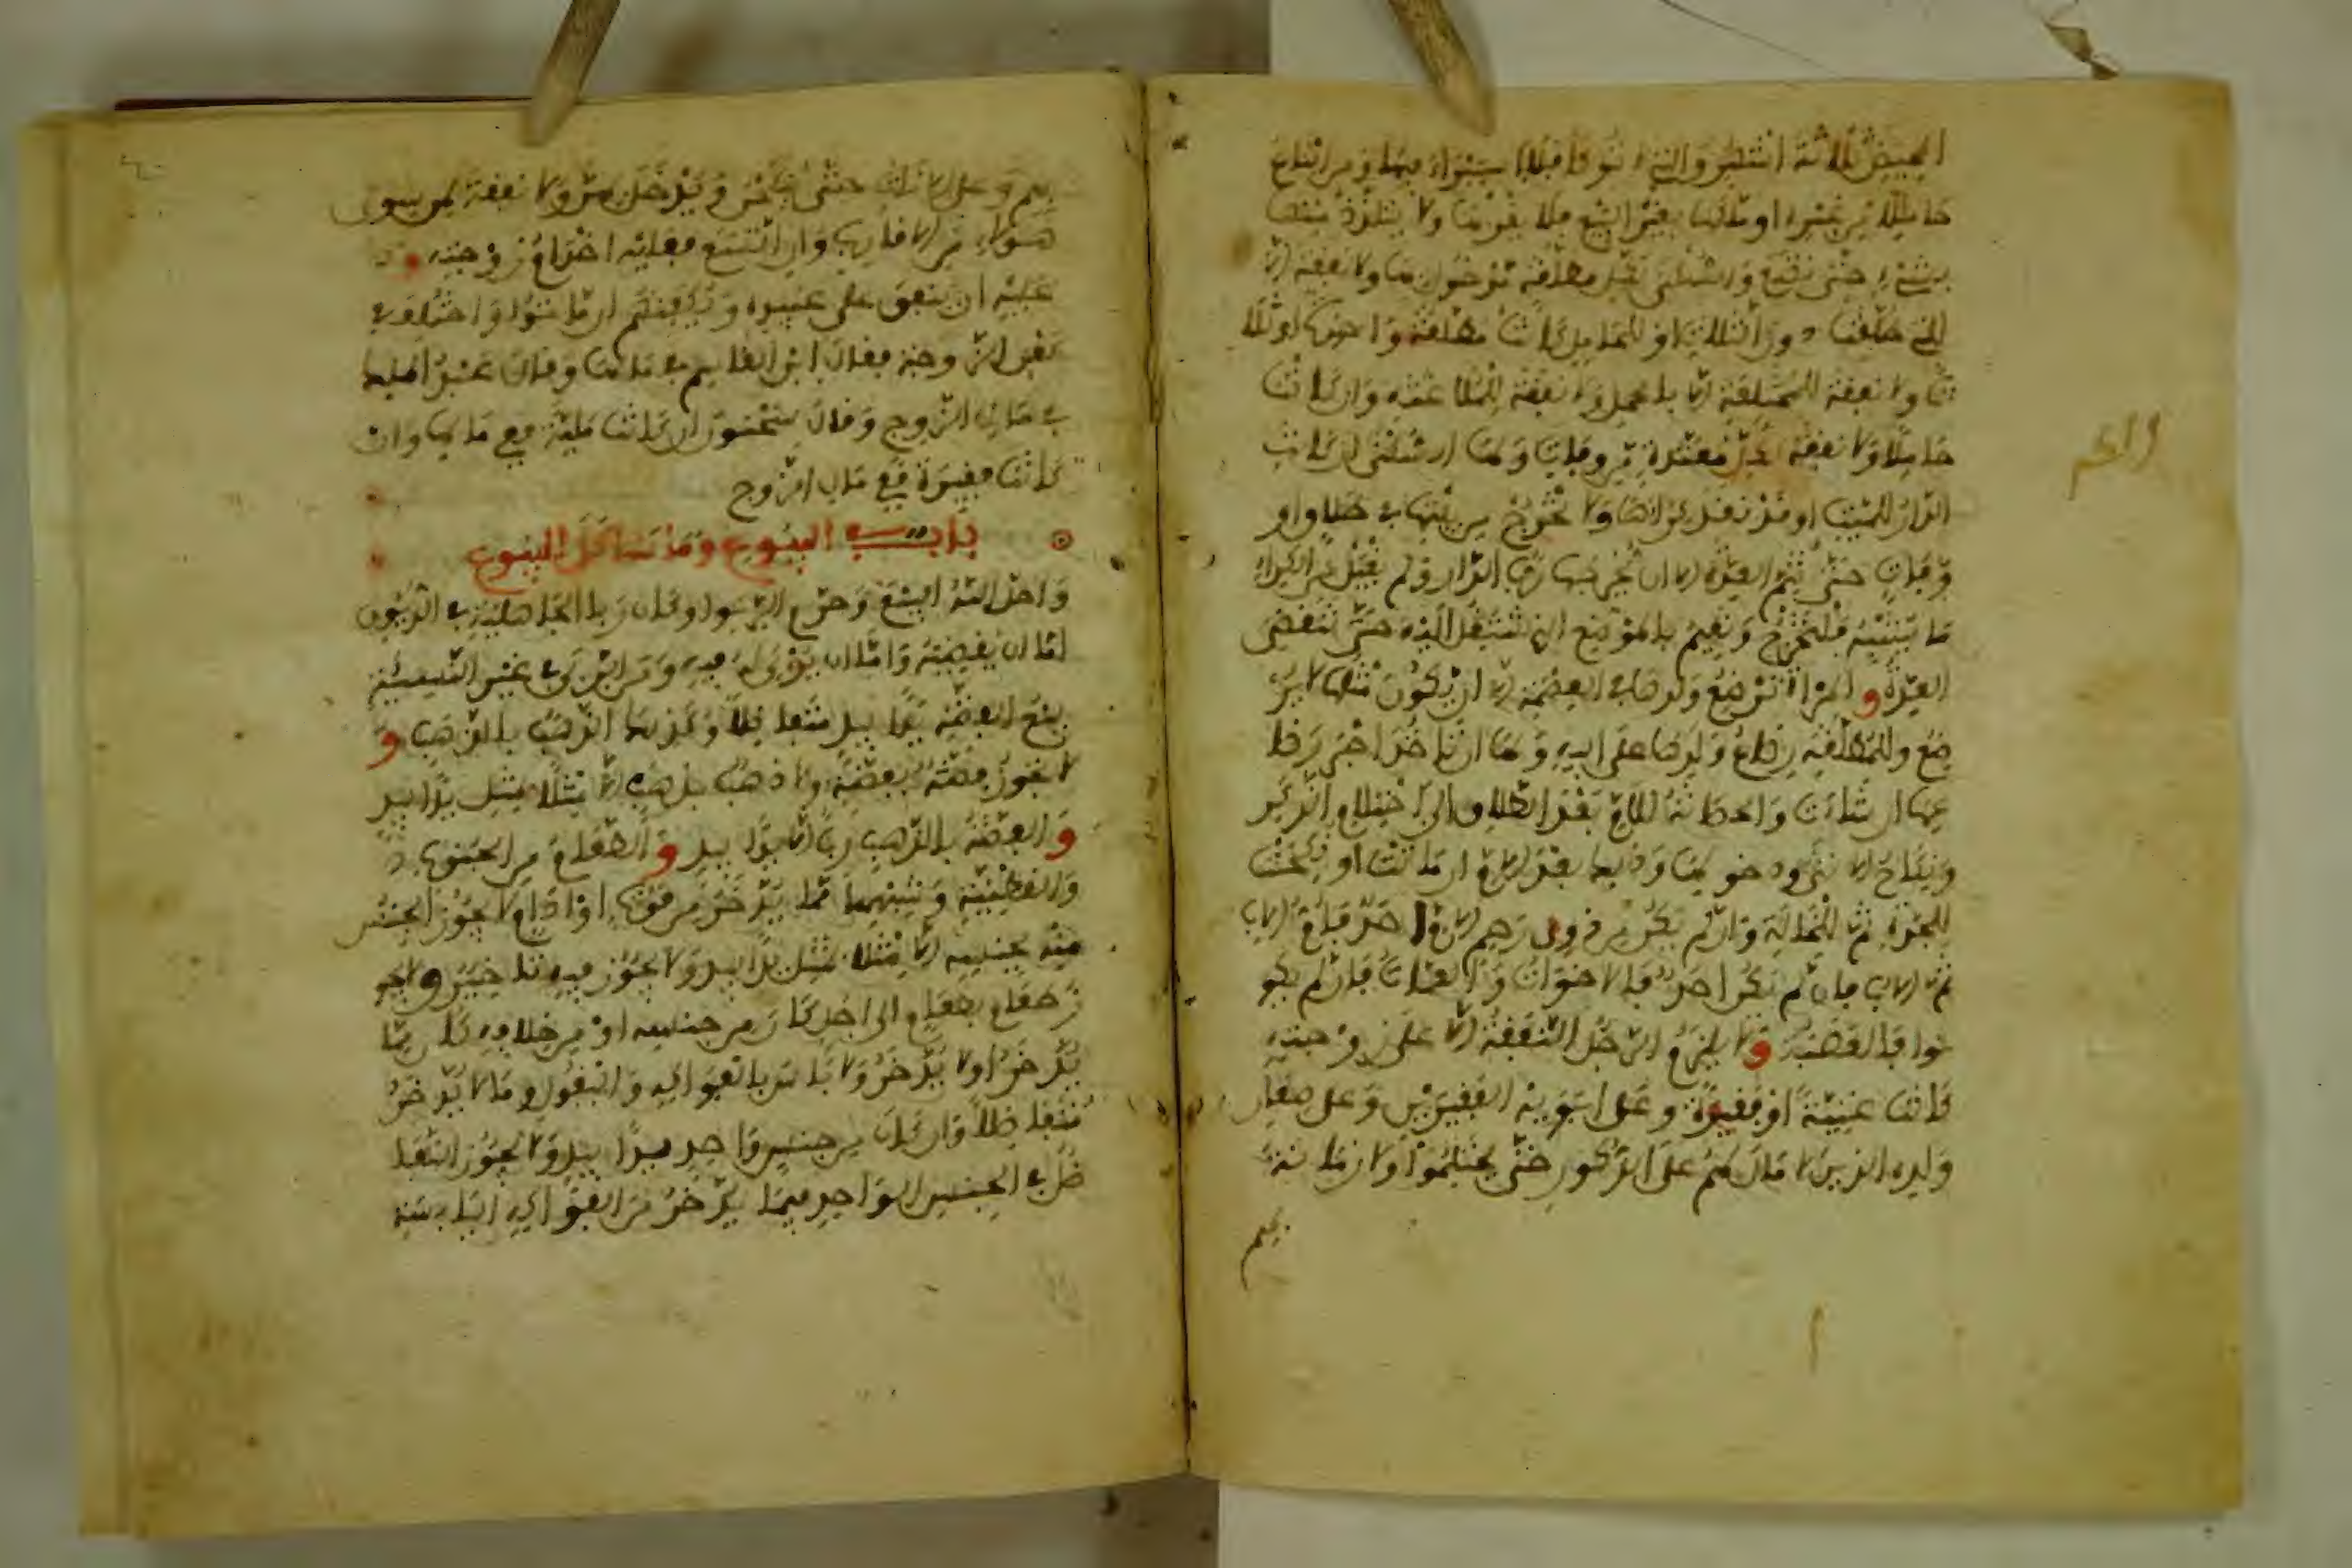 الحيض ثلاثة أشهر والتي توطأ فلا استبراء فيها ومن ابتاع
حاملا من غيره او ملكها بغير البيع فلا يقربها ولا يتلذذ منها
بشيء حتى تضع والسكنى لكل مطلقة مدخول بها ولا نفقة الا
للتي طلقت دون الثلاث او للحامل كانت مطلقة واحدة او ثلا
ثا ولا نفقة للمختلعة الا بالحمل ولا نفقة للملاعنة وان كانت
حاملا ولا نفقة لكل معتدة من وفاة ولها السكنى ان كانت
الدار للميت او قد نقد كراءها ولا تخرج من بيتها في طلاق او
وفاة حتى تتم العدة الا ان يخرجها رب الدار ولم يقبل من الكراء
ما يشبه فلتخرج وتقيم بالموضع الذي تنتقل اليه حتى تنقضي
العدة والمرأة ترضع ولدها في العصمة الا ان يكون مثلها لا ير
ضع وللمطلقة رضاع ولدها على ابيه ولها ان تاخذ اجر رضا
عها ان شاءت والحضانة للام بعد الطلاق الى احتلام الذكر
ونكاح الانثى ودخول بها وذلك بعد الام ان ماتت او نكحت
للجدة ثم للخالة وان لم يكن من ذوي رحم الام احد فام الاب
ثم الاب فان لم يكن احد فالاخوات والعمات فان لم يكو
نوا فالعصبة ولا يلزم الرجل النفقة الا على زوجته
كانت غنية او فقيرة وعلى ابويه الفقيرين وعلى صغار
ولده الذين لا مال لهم على الذكور حتى يحتلموا ولا زمانة
بهم
بهم وعلى الاناث حتى ينكحن ويدخل بهن ولا نفقة لمن سوى
هولاء من الاقارب وان اتسع فعليه اخدام زوجته و
عليه ان ينفق على عبيده ويكفنهم ان ماتوا واختلف في
كفن الزوجة فقال ابن القاسم في مالها وقال عبد الملك
في مال الزوج وقال سحنون ان كانت ملية ففي مالها وان
كانت فقيرة ففي مال الزوج
باب في البيوع وما شاكل البيوع
واحل الله البيع وحرم الربوا وكان ربا الجاهلية في الديون
اما ان يقضيه واما ان يربي له فيه ومن الربى في غير النسيئة
بيع الفضة يدا بيد متفاضلا وكذلك الذهب بالذهب و
لا يجوز فضة بفضة ولا ذهب بذهب الا مثلا بمثل يدا بيد
والفضة بالذهب ربا الا يدا بيد والطعام من الحبوب
والقطنية وشبههما مما يدخر من قوت او ادام لا يجوز الجنس
منه بجنسه الا مثلا بمثل يدا بيد ولا يجوز فيه تاخير ولا يجو
ز طعام بطعام الى اجل كان من جنسه او من خلافه كان مما
يدخر او لا يدخر ولا باس بالفواكه والبقول وما لا يدخر
متفاضلا وان كان من جنس واحد يدا بيد ولا يجوز التفا
ضل في الجنس الواحد فيما يدخر من الفواكه اليابسة